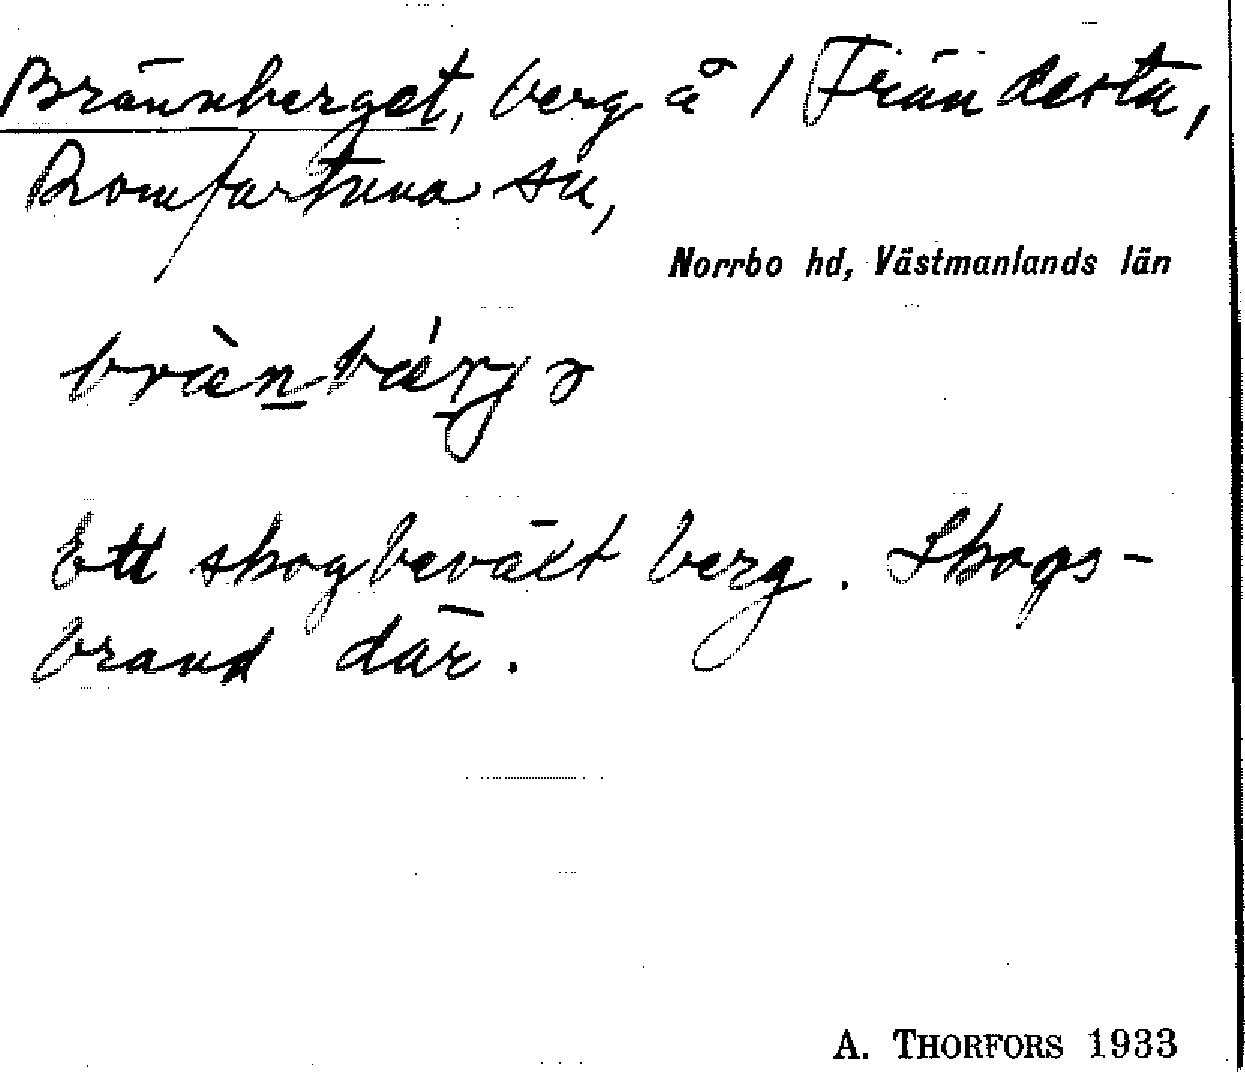 Brännberget, berg å 1 Frändesta,
Romfartuna sn,
Norrbo hd, Västmanlands län
bræ̀nbǽrjə
Ett skogbeväxt berg. Skogs-
brand där.
A. THORFORS 1933